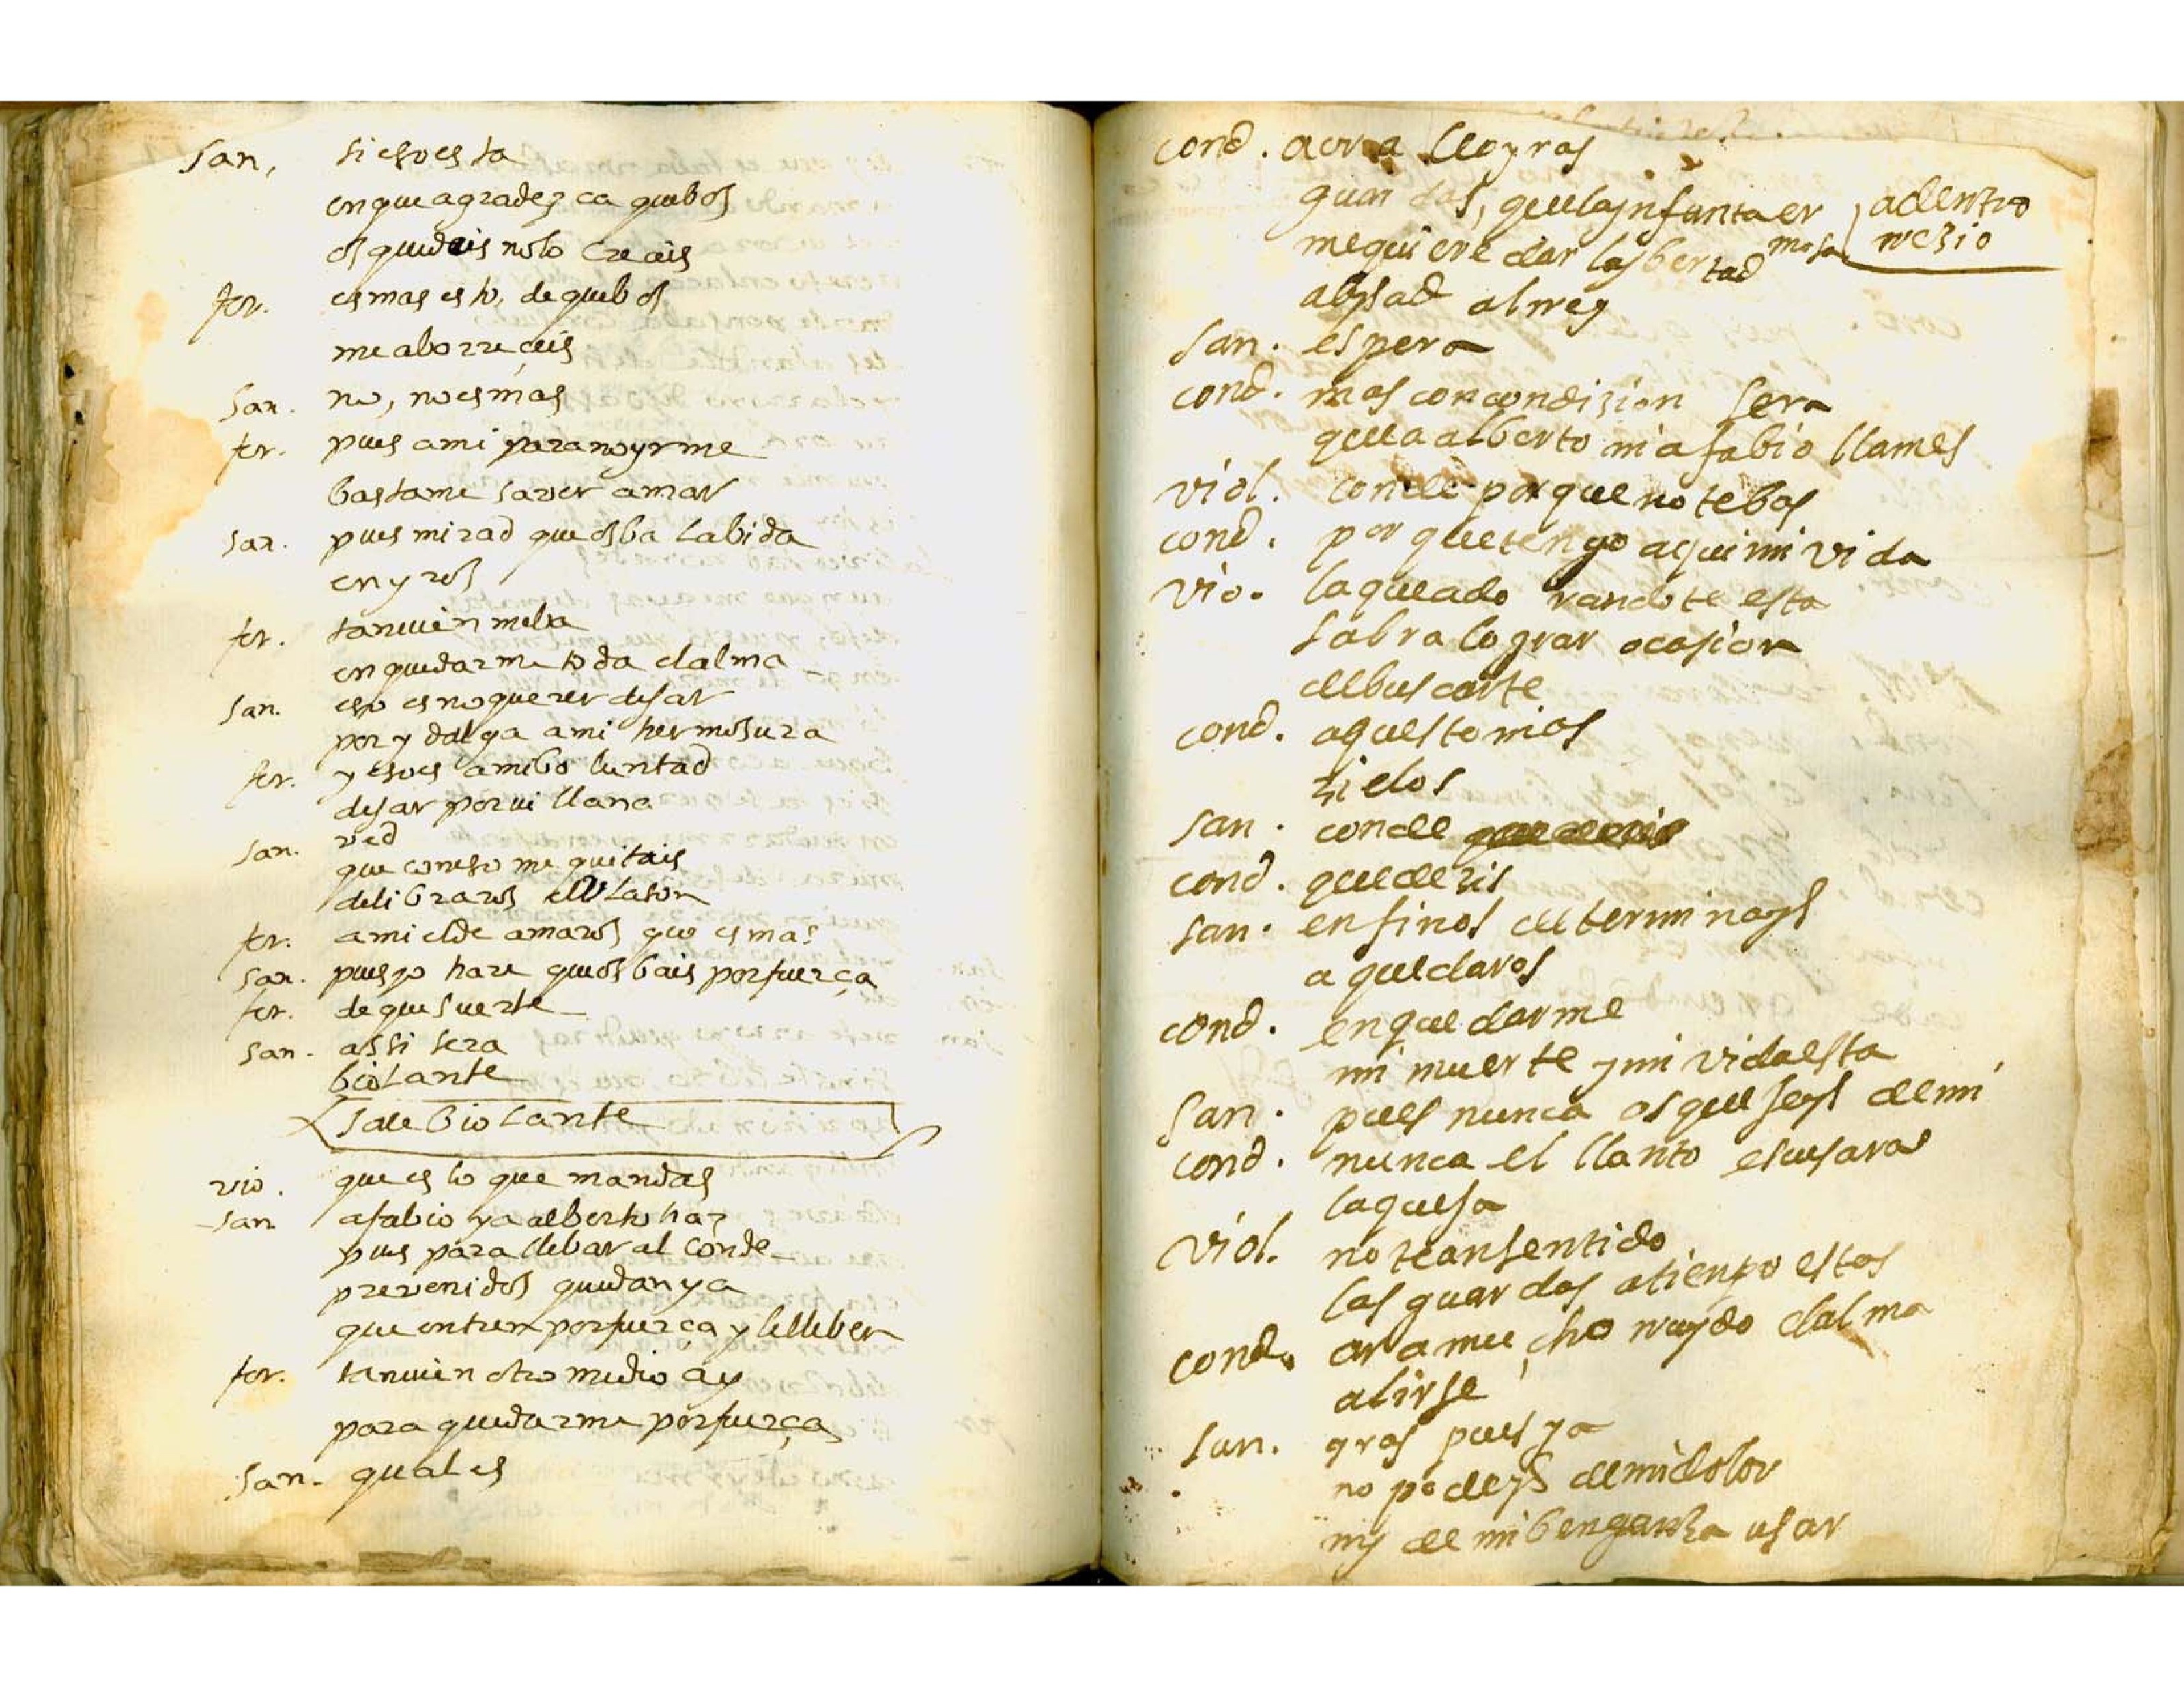 san, si eso esta
en que agradezca que bos
os quedeis no lo creais
fer. es mas esto, de que bos
me aborreçeis
san. no, no es mas
fer. pues a mi para no yrme
bastame saver amar
san. pues mirad que os ba la bida
en yros
fer. tanvien me ba
en quedarme toda el alma
san. eso es no querer dejar
por ydalga a mi hermosura
fer. y eso es a mi boluntad
dejar por villana
san. ved
que con eso me quitais
de libraros el blason
fer. a mi el de amaros que es mas
san. pues yo hare que os bais por fuerça
fer. de que suerte
san. assi sera
biolante
sale biolante
vio. que es lo que mandas
san a fabio y a alberto haz
pues para llebar al conde
prevenidos quedan ya
que entren por fuerça y le lleben
fer. tanvien otro medio ay
para quedarme por fuerça
san. qual es
cond. aora lo yras
guardas, que la ynfanta er
mosa
adentro
rezio
me quiere dar la libertad
abisad al rey
san. espera
cond. mas con condizion sera
que a alberto ni a fabio llames
viol. conde porque no te bas
cond. por que tengo aqui mi vida
vio. la que adorandote esta
sabra lograr ocasion
de buscarte
cond. aquesto mas
zielos
san. conde
cond. que dezis
san. en fin os determinays
a quedaros
cond. en quedarme
mi muerte y mi vida esta
san. pues nunca os quejeys de mi
cond. nunca el llanto escusaras
la queja
viol. no te an sentido
las guardas a tienpo estas
cond. ara mucho ruydo el alma
al irse
san. yras pues ya
no podeys de mi dolor
ny de mi benganza usar